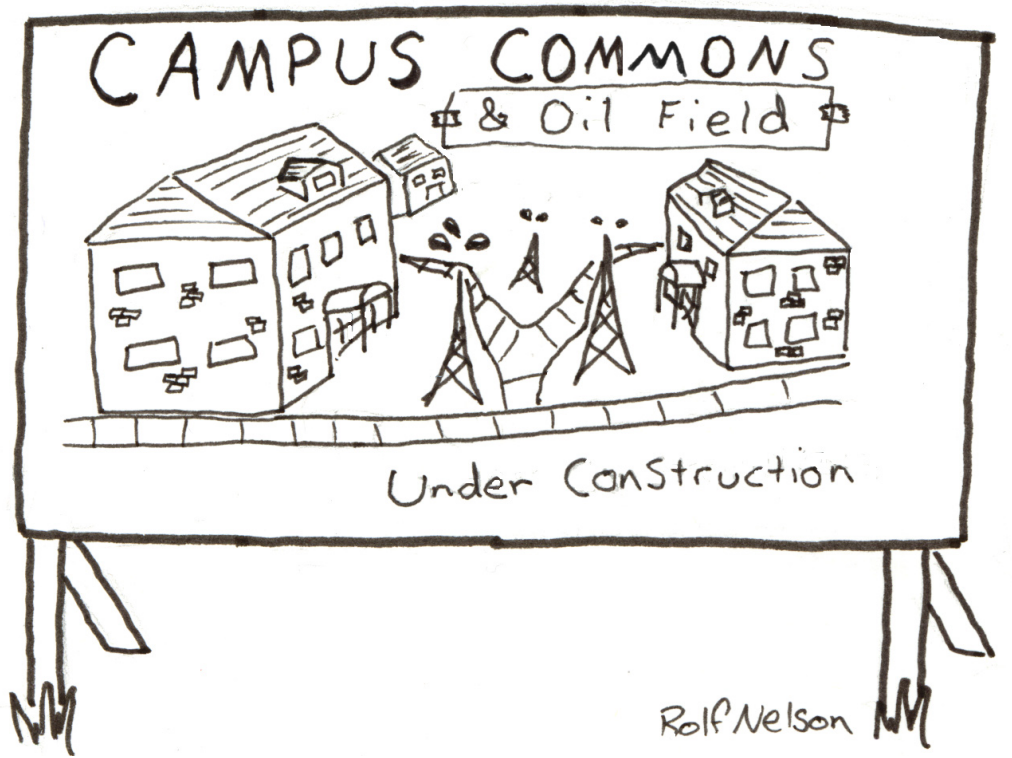 CAMPUS COMMONS
& Oil Field
Under Construction
Rolf Nelson